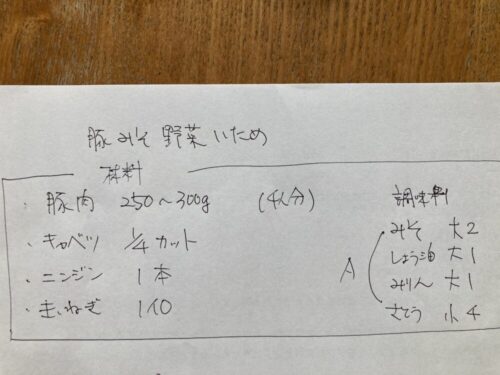 豚みそ野菜いため
材料
・豚肉 250～300g (4人分)
・キャベツ 1/4カット
・ニンジン 1本
・玉ねぎ 1個
調味料
A
みそ 大2
しょう油 大1
みりん 大1
さとう 小4